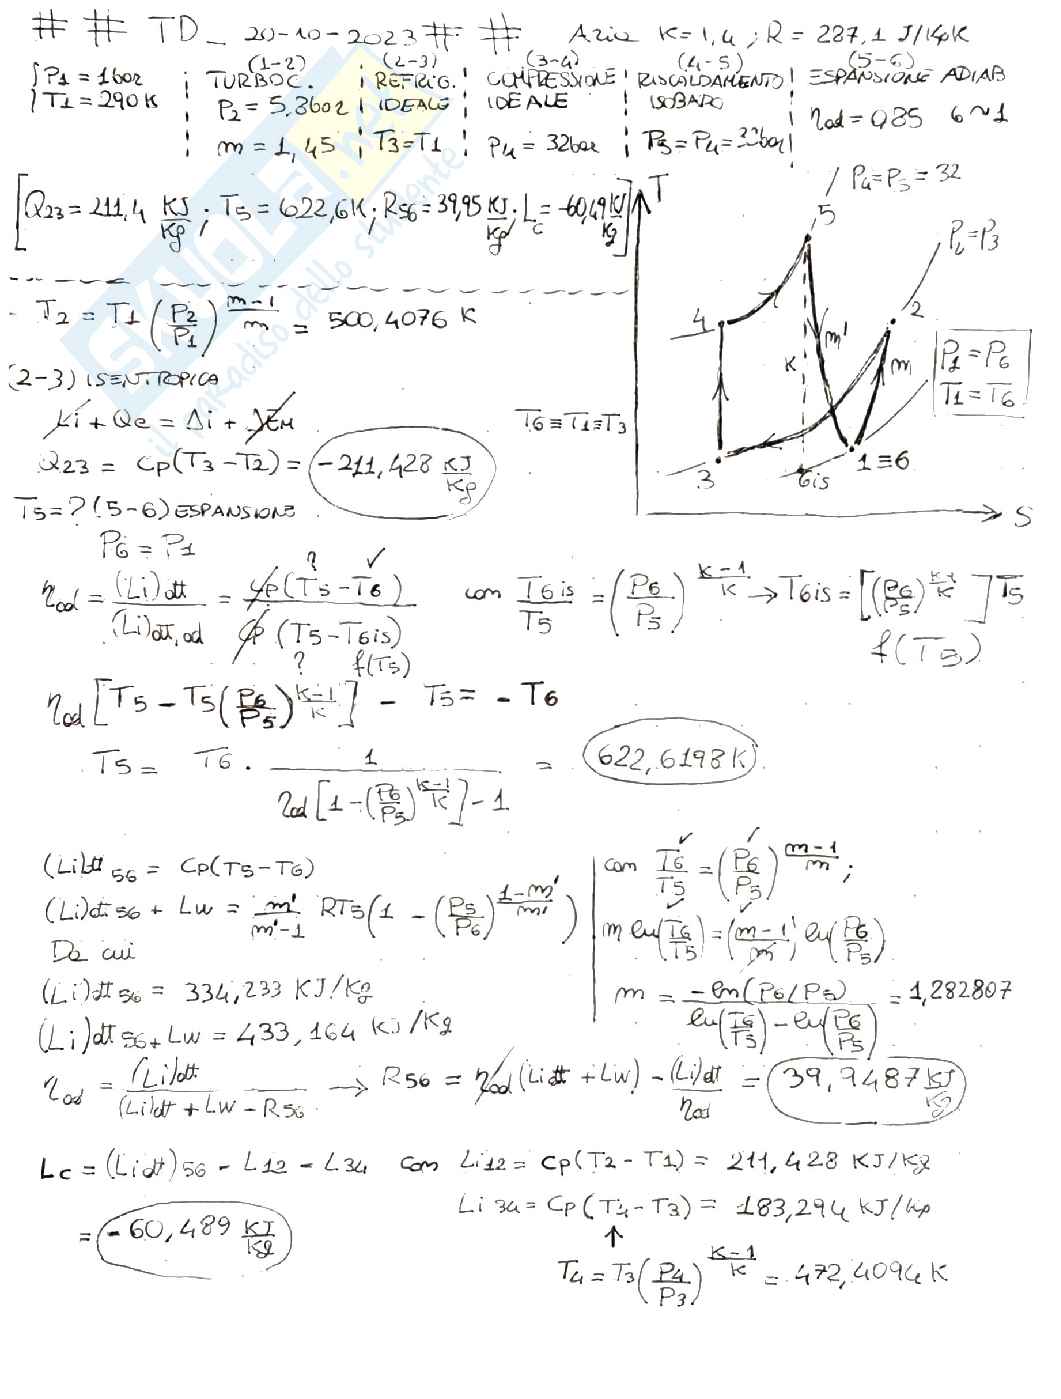 # # TD_ 20-10-2023 # # Aria K=1,4 ; R=287,1 J/kgK
{ P1 = 1bar
T1 = 290K
(1-2)
TURBOC.
P2 = 5,3bar
m = 1,45
(2-3)
REFRIG.
IDEALE
T3=T1
(3-4)
COMPRESSIONE
IDEALE
P4= 32bar
(4-5)
RISCALDAMENTO
ISOBARO
P5= P4= 32bar
(5-6)
ESPANSIONE ADIAB
ηad= 0,85 6~1
[Q23=211,4 KJ/Kg ; T5=622,6K ; R56=39,95 KJ/Kg ; Lc=-60,49 KJ/Kg]
T
P4=P5=32
5
P2=P3
4
2
m'
K
m
P1=P6
T1=T6
3
6is
1≡6
S
T2 = T1 (P2/P1)^(m-1/m) = 500,4076 K
(2-3) ISENTROPICA
Li + Qe = Δi + ΔEM
T6≡T1≡T3
Q23 = Cp(T3-T2) = -211,428 KJ/Kg
T5=? (5-6) ESPANSIONE
P6 = P1
ηad = (Li)dtt / (Li)dtt,ad = Cp(T5-T6) / Cp(T5-T6is)
? ✓
? f(T5)
con T6is/T5 = (P6/P5)^(K-1/K) → T6is = [(P6/P5)^(K-1/K)] T5
f(T5)
ηad [T5 - T5(P6/P5)^(K-1/K)] - T5 = - T6
T5 = T6 · 1 / ηad[1-(P6/P5)^(K-1/K)]-1 = 622,6198 K
(Li)dtt 56 = Cp(T5-T6)
(Li)dt 56 + Lw = m'/m'-1 RT5(1 - (P5/P6)^(1-m'/m'))
Da cui
(Li)dt 56 = 334,233 KJ/Kg
(Li)dt 56 + Lw = 433,164 KJ/Kg
con T6/T5 = (P6/P5)^(m-1/m) ;
m ln(T6/T5) = (m-1) ln(P6/P5)
m = -ln(P6/P5) / ln(T6/T5) - ln(P6/P5) = 1,282807
ηad = (Li)dt / (Li)dt + Lw - R56 → R56 = ηad(Lidt + Lw) - (Li)dt / ηad = 39,9487 KJ/Kg
Lc = (Lidt)56 - L12 - L34 con Li12 = Cp(T2-T1) = 211,428 KJ/Kg
= -60,489 KJ/Kg
Li 34 = Cp(T4-T3) = 183,294 KJ/Kg
↑
T4 = T3 (P4/P3)^(K-1/K) = 472,4094 K
SKUOLA.net
il paradiso dello studente